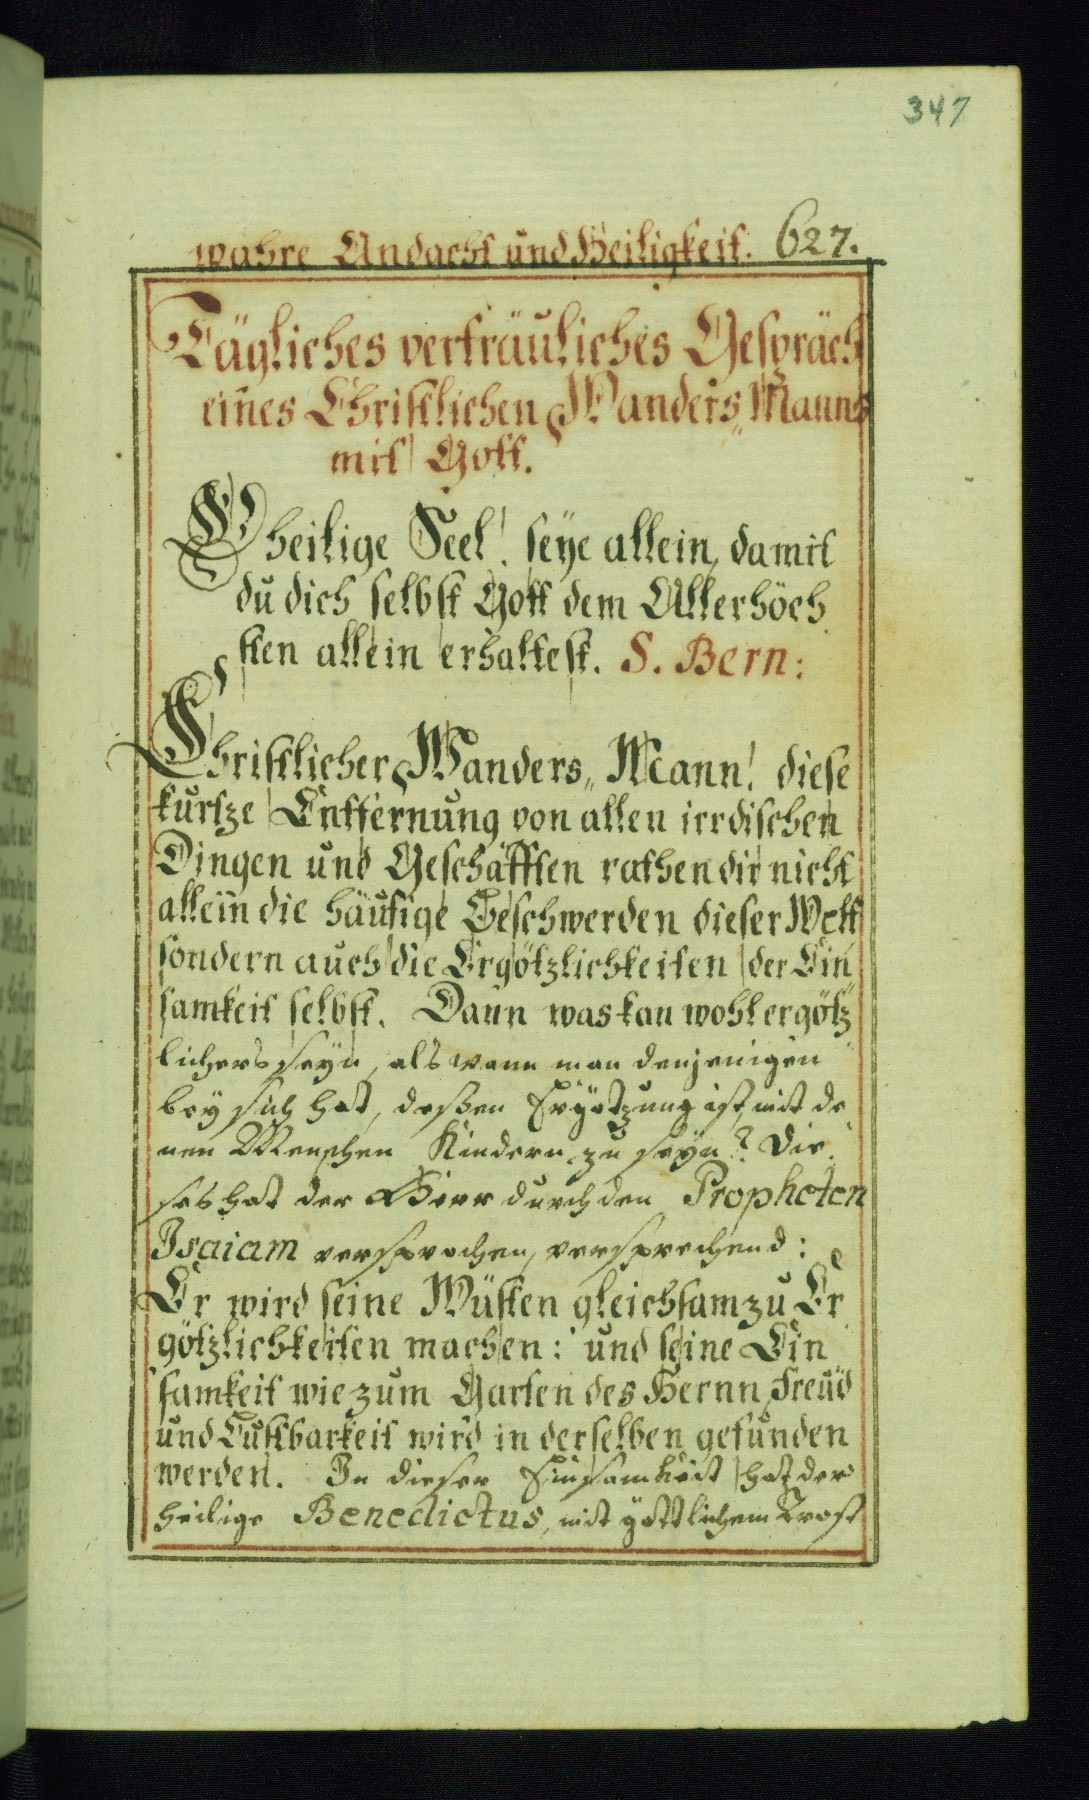 347
wahre Andacht und Heiligkeit. 627.
Tägliches verträuliches Gespräch
eines Christlichen Wanders„Manns
mit Gott.
O heilige Seel! seye allein, damit
du dich selbst Gott dem Allerhöch
sten allein erhaltest. S. Bern:
Christlicher Wanders„Mann! diese
kurtze Entfernung von allen irrdischen
Dingen und Geschäfften rathen dir nicht
allein die häufige Beschwerden dieser Welt
sondern auch die Ergötzlichkeiten der Ein
samkeit selbst. Dann was kan wohl ergötz
lichers seyn, als wann man denjenigen
bey sich hat, deßen Ergötzung ist mit de
nen Menschen Kindern zu seyn? Die
ses hat der Herr durch den Propheten
Isaiam versprochen, versprechend:
Er wird seine Wüsten gleichsam zu Er
götzlichkeiten machen: und seine Ein
samkeit wie zum Garten des Herrn, Freüd
und Lustbarkeit wird in derselben gefunden
werden. In dieser Einsamkeit hat der
heilige Benedictus, mit göttlichem Trost